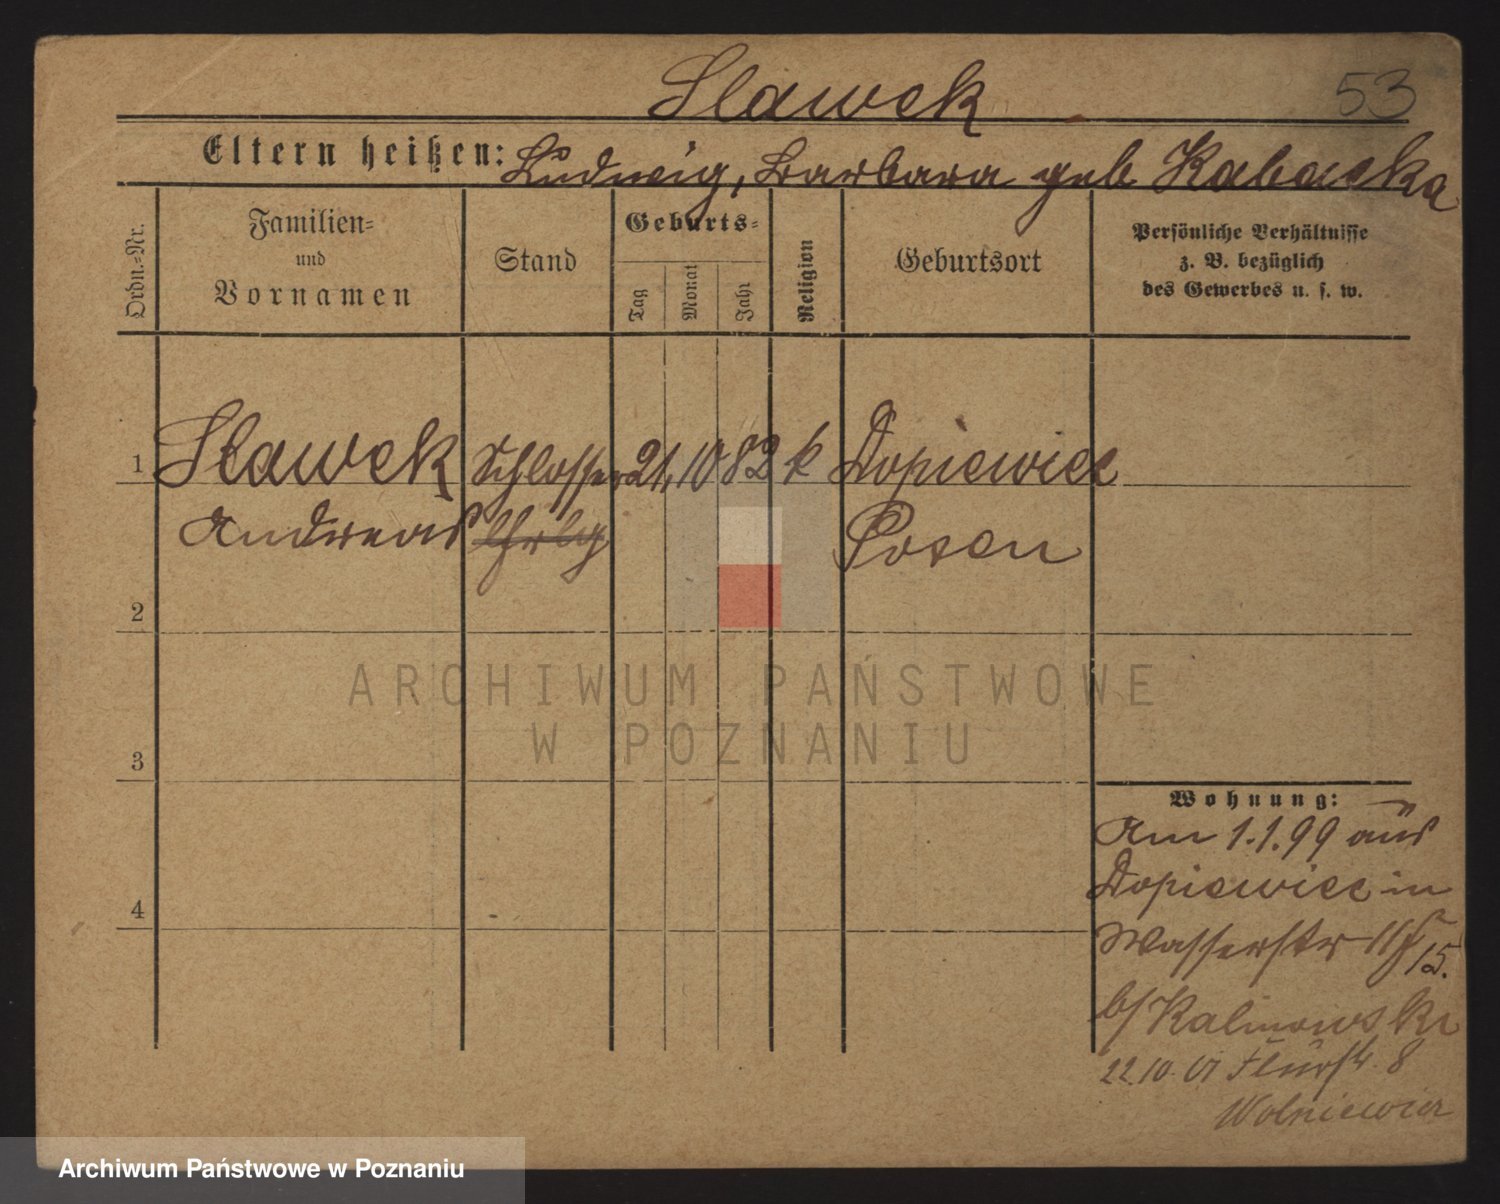 Slawek
53
Eltern heißen: Ludwig, Barbara geb Kabacka
Ordn.-Nr.
Familien-
und
Vornamen
Stand
Geburts-
Tag
Monat
Jahr
Religion
Geburtsort
Persönliche Verhältnisse
z. B. bezüglich
des Gewerbes u. s. w.
1 Slawek Schlosser 21. 10 82 k Dopiewiec
Andreas Posen
2
3
4
Wohnung:
Am 1.1.99 aus
Dopiewiec in
Wasserstr 15.
b/ Kalinowski
22.10.01 Flurstr. 8
Wolniewicz
ARCHIWUM PAŃSTWOWE
W POZNANIU
Archiwum Państwowe w Poznaniu